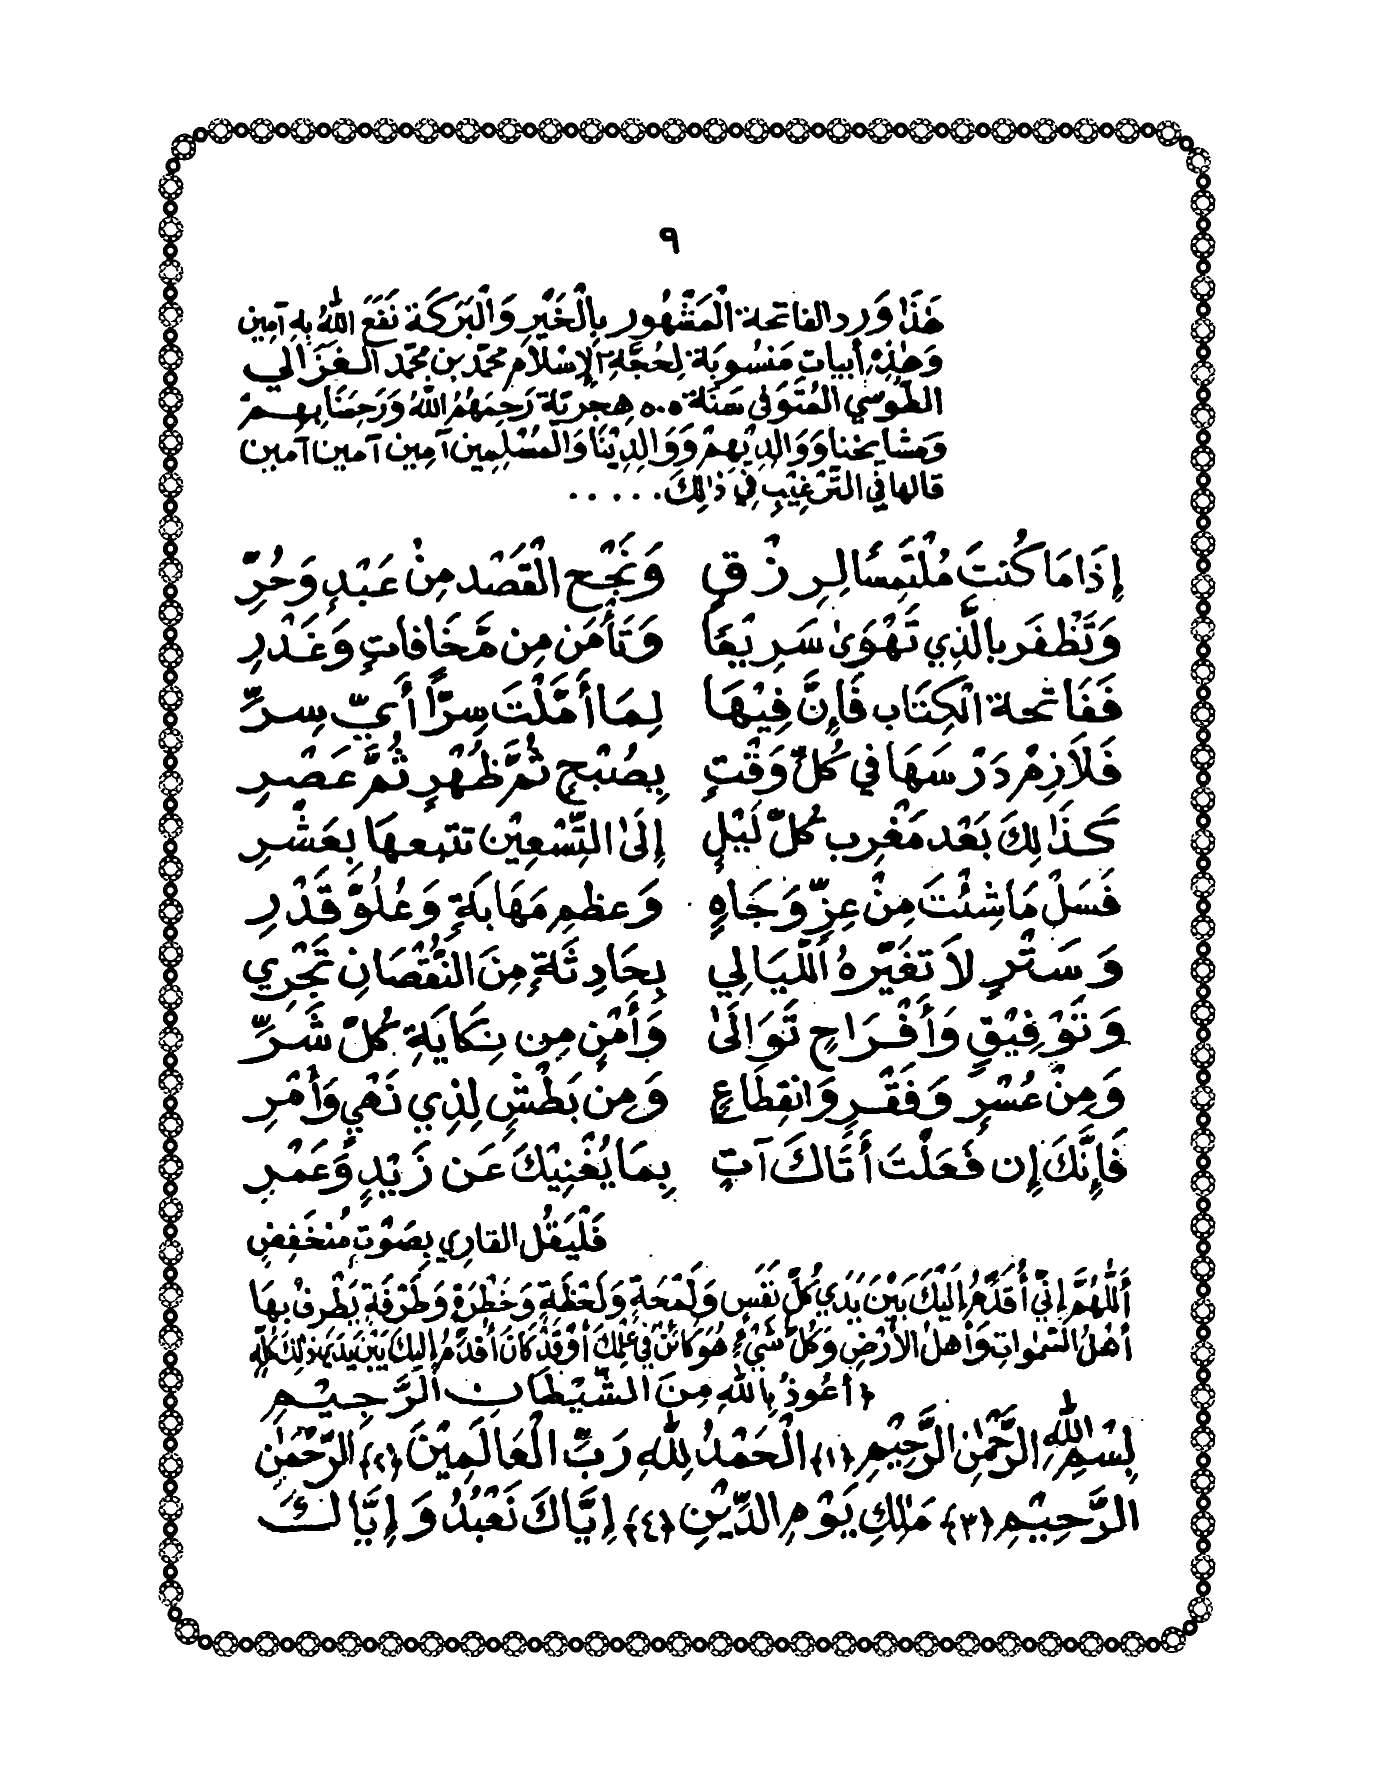 ٩
هَذَا وَرد الفاتحة الْمَشْهُور بِالْخَيْرِ وَالْبَرَكَة نَفَعَ اللهُ بِهِ آمِين
وَهٰذِهِ أَبيات مَنْسُوبَة لِحُجَّةِ الإِسْلَام محمّد بن محمّد الغزَالي
الطُّوسِي المُتَوَفى سَنَة ٥٠٥ هِجرِيّة رَحِمَهُمُ اللهُ وَرَحِمَنَا بِهِمْ
وَمشايخنا وَوَالِدِيْهِمْ وَوَالِدِيْنَا وَالمُسْلِمِين آمِين آمين آمين
قالها في التَّرْغِيْبِ فِي ذٰلِكَ . . . . .
إِذَا مَا كُنتَ مُلْتَمِسًا لِرِزْقٍ وَنَجْحِ الْقَصْدِ مِنْ عَبْدٍ وَحُرِّ
وَتَظْفَر بِالَّذِي تَهْوَىٰ سَرِيعًا وَتَأْمَن مِن مَخَافاتٍ وَغَدْرِ
فَفَاتحة الْكِتَاب فَإِنَّ فِيْهَا لِمَا أَمَّلْتَ سِرًّا أَيّ سِرِّ
فَلَازِمْ دَرْسَهَا في كُلّ وَقْتٍ بِصُبْحٍ ثُمَّ ظُهْرٍ ثُمَّ عَصْرِ
كَذَالِكَ بَعْد مَغْرِب كُلّ لَيْلٍ إِلَىٰ التِّسْعِيْن تتبعها بِعَشْرِ
فَسَلْ مَا شِئْتَ مِنْ عِزّ وَجَاهٍ وَعظمِ مَهَابَةٍ وَعُلُوّ قَدْرِ
وَسَتْرٍ لَا تغَيّره اللّيَالِي بِحَادِثَةٍ مِنَ النُّقْصَانِ تَجْرِي
وَتَوْفِيْقٍ وَأَفْرَاحٍ تَوَالَىٰ وَأَمْنٍ مِن نِكَايَةِ كُلّ شَرِّ
وَمِنْ عُسْرٍ وَفَقْرٍ وَانقِطَاعٍ وَمِن بَطْشٍ لِذِي نَهْيٍ وَأَمْرِ
فَإِنَّكَ إِن فَعَلْتَ أَتَاكَ آتٍ بِمَا يُغْنِيْكَ عَن زَيْدٍ وَعَمْرِ
فَلْيَقُل القارِي بِصَوْتٍ مُنْخَفِضٍ
أَللّٰهُمَّ إِنّي أُقَدِّمُ إِلَيْكَ بَيْنَ يَدَي كُلِّ نَفَسٍ وَلَمْحَةٍ وَلَحْظَةٍ وَخَطْرَةٍ وَطَرْفَةٍ يَطْرِفُ بِهَا
أَهْلُ السَّمٰوَاتِ وَأَهلُ الأَرْضِ وَكُلِّ شَيْءٍ هُوَ كَائنٌ في عِلْمِكَ أَوْ قَدْ كَانَ أُقَدِّمُ إِلَيْكَ بَيْنَ يَدَي ذٰلِكَ كُلِّهِ
﴿ أعُوذُ بِاللهِ مِنَ الشَّيْطَانِ الرَّجِيْمِ
بِسْمِ اللهِ الرَّحْمٰنِ الرَّحِيْمِ ﴿١﴾ الْحَمْدُ لِلّٰهِ رَبِّ الْعَالَمِيْنَ ﴿٢﴾ الرَّحْمٰنِ
الرَّحِيْمِ ﴿٣﴾ مَالِكِ يَوْمِ الدِّيْنِ ﴿٤﴾ إِيَّاكَ نَعْبُدُ وَإِيَّاكَ